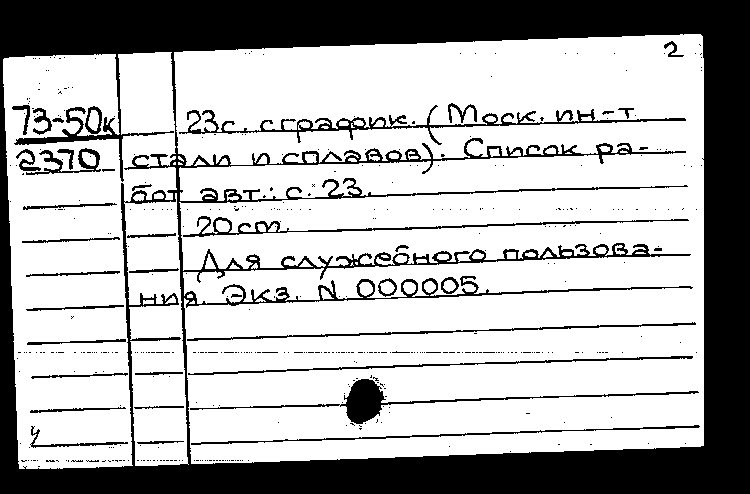 2
73-50к 23с. с график. (Моск. ин-т
2370 стали и сплавов). Список ра-
бот авт.: с. 23.
20 cm.
Для служебного пользова-
ния. Экз. N 000005.